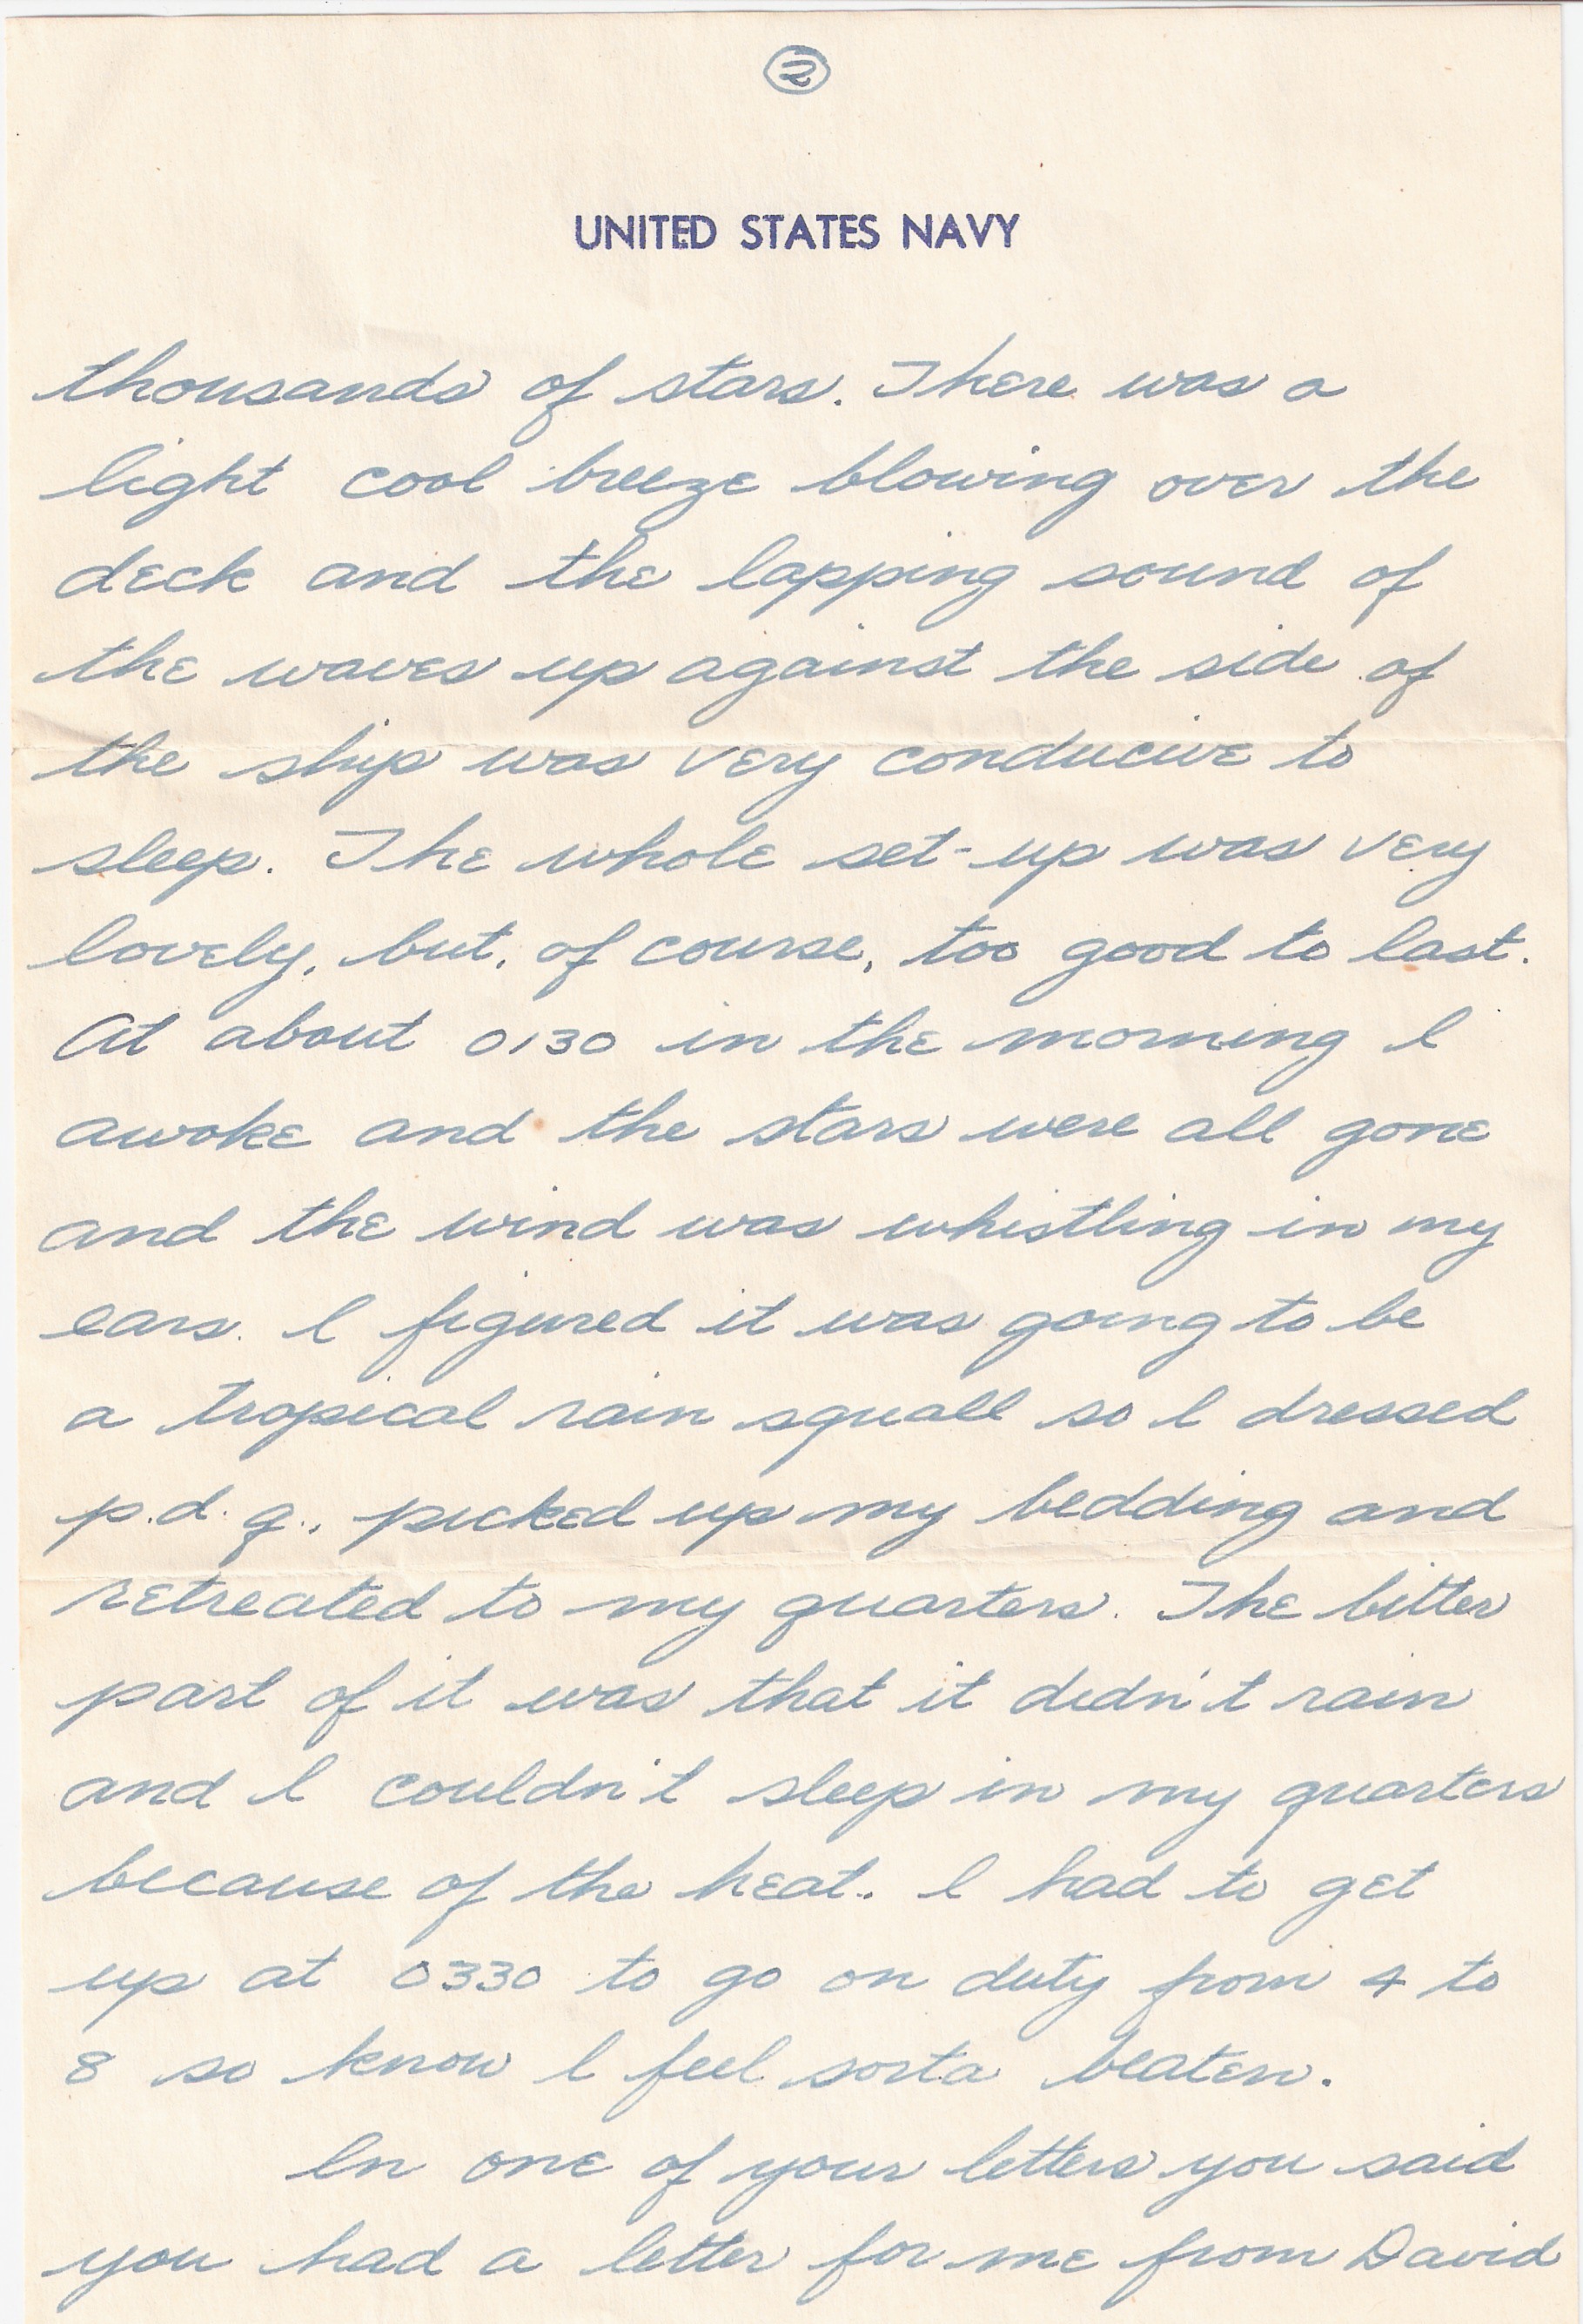 2
UNITED STATES NAVY
thousands of stars. There was a
light cool breeze blowing over the
deck and the lapping sound of
the waves up against the side of
the ship was very conducive to
sleep. The whole set-up was very
lovely, but, of course, too good to last.
At about 0130 in the morning I
awoke and the stars were all gone
and the wind was whistling in my
ears. I figured it was going to be
a tropical rain squall so I dressed
p.d.q., picked up my bedding and
retreated to my quarters. The bitter
part of it was that it didn't rain
and I couldn't sleep in my quarters
because of the heat. I had to get
up at 0330 to go on duty from 4 to
8 so know I feel sorta beaten.
In one of your letters you said
you had a letter for me from David